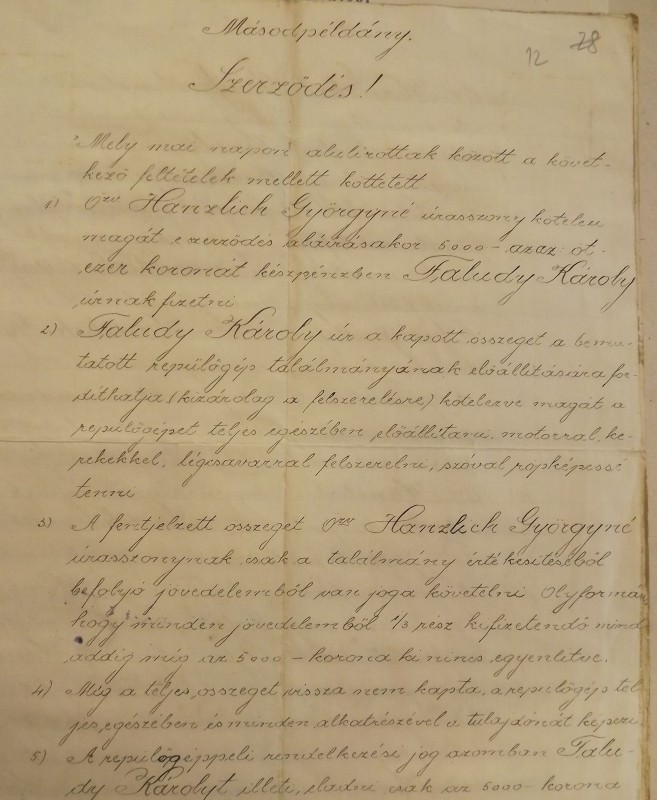 Másodpéldány.
12 78
Szerződés!
Mely mai napon alulirottak között a követ-
kező feltételek mellett köttetett
1) Özv Hanzlich Györgyné úrasszony kötelezi
magát e szerződés aláirásakor 5000 – azaz öt-
ezer koronát készpénzben Faludy Károly
úrnak fizetni
2) Faludy Károly úr a kapott összeget a bemu-
tatott repülőgép találmányának előállitására for-
dithatja (kizárólag a felszerelésre) kötelezve magát a
repülőgépet teljes egészében előállitani, motorral, ke-
rekekkel, légcsavarral felszerelni, szóval röpképessé
tenni
3) A fentjelzett összeget Özv Hanzlich Györgyné
úrasszonynak csak a találmány értékesitéséből
befolyó jövedelemből van joga követelni Olyformán
hogy minden jövedelemből 1/3 rész kifizetendő mind
addig mig az 5000 – korona ki nincs egyenlitve.
4) Mig a teljes összeget vissza nem kapta, a repülőgép tel-
jes egészében és minden alkatrészével a tulajdonát képezi
5) A repülőgéppeli rendelkezési jog azomban Falu-
dy Károlyt illeti, eladni csak az 5000 – korona